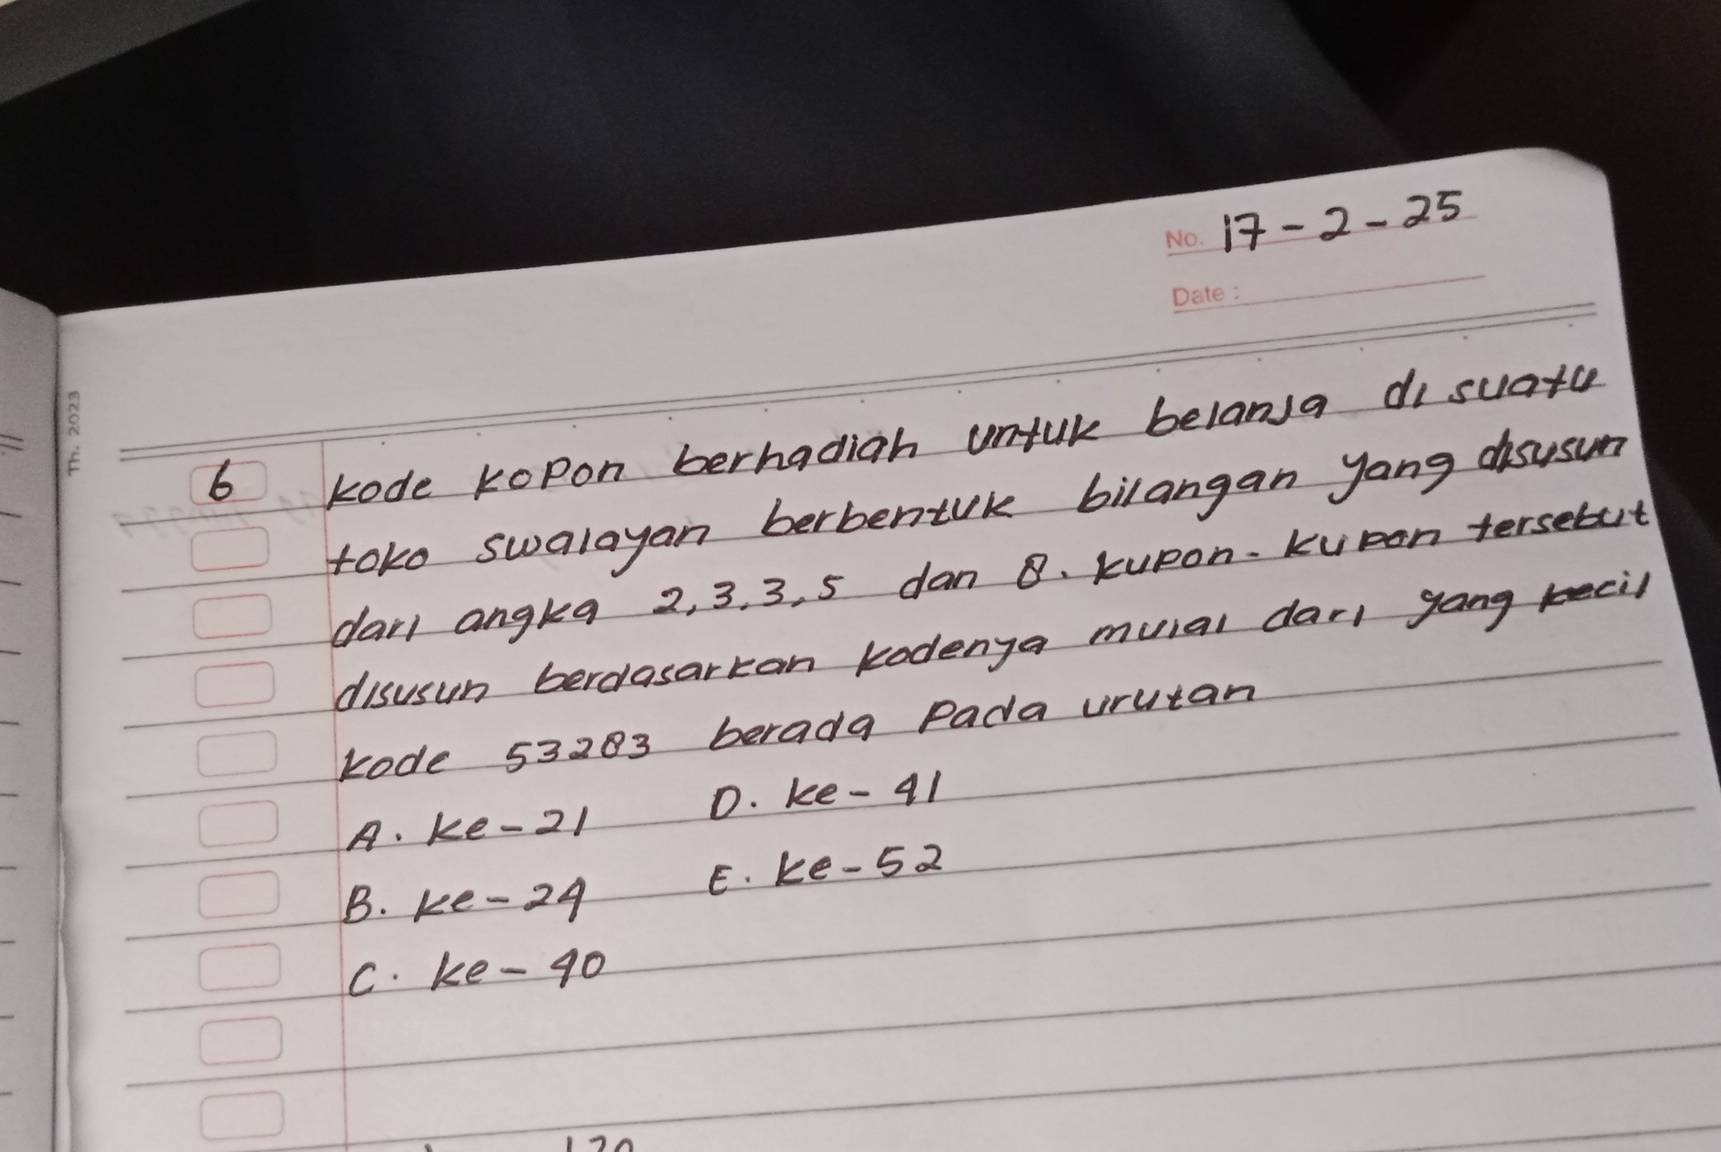 No. 17-2-25
Date:
Th. 2023
6 Kode Kopon berhadiah untuk belanja di suatu
toko swalayan berbentuk bilangan yang disusun
dari angka 2, 3, 3, 5 dan 8. Kupon-Kupon tersebut
disusun berdasarkan kodenya mulai dari yang kecil
kode 53283 berada pada urutan
A. ke-21 D. ke-41
B. ke-24 E. ke-52
C. ke-40